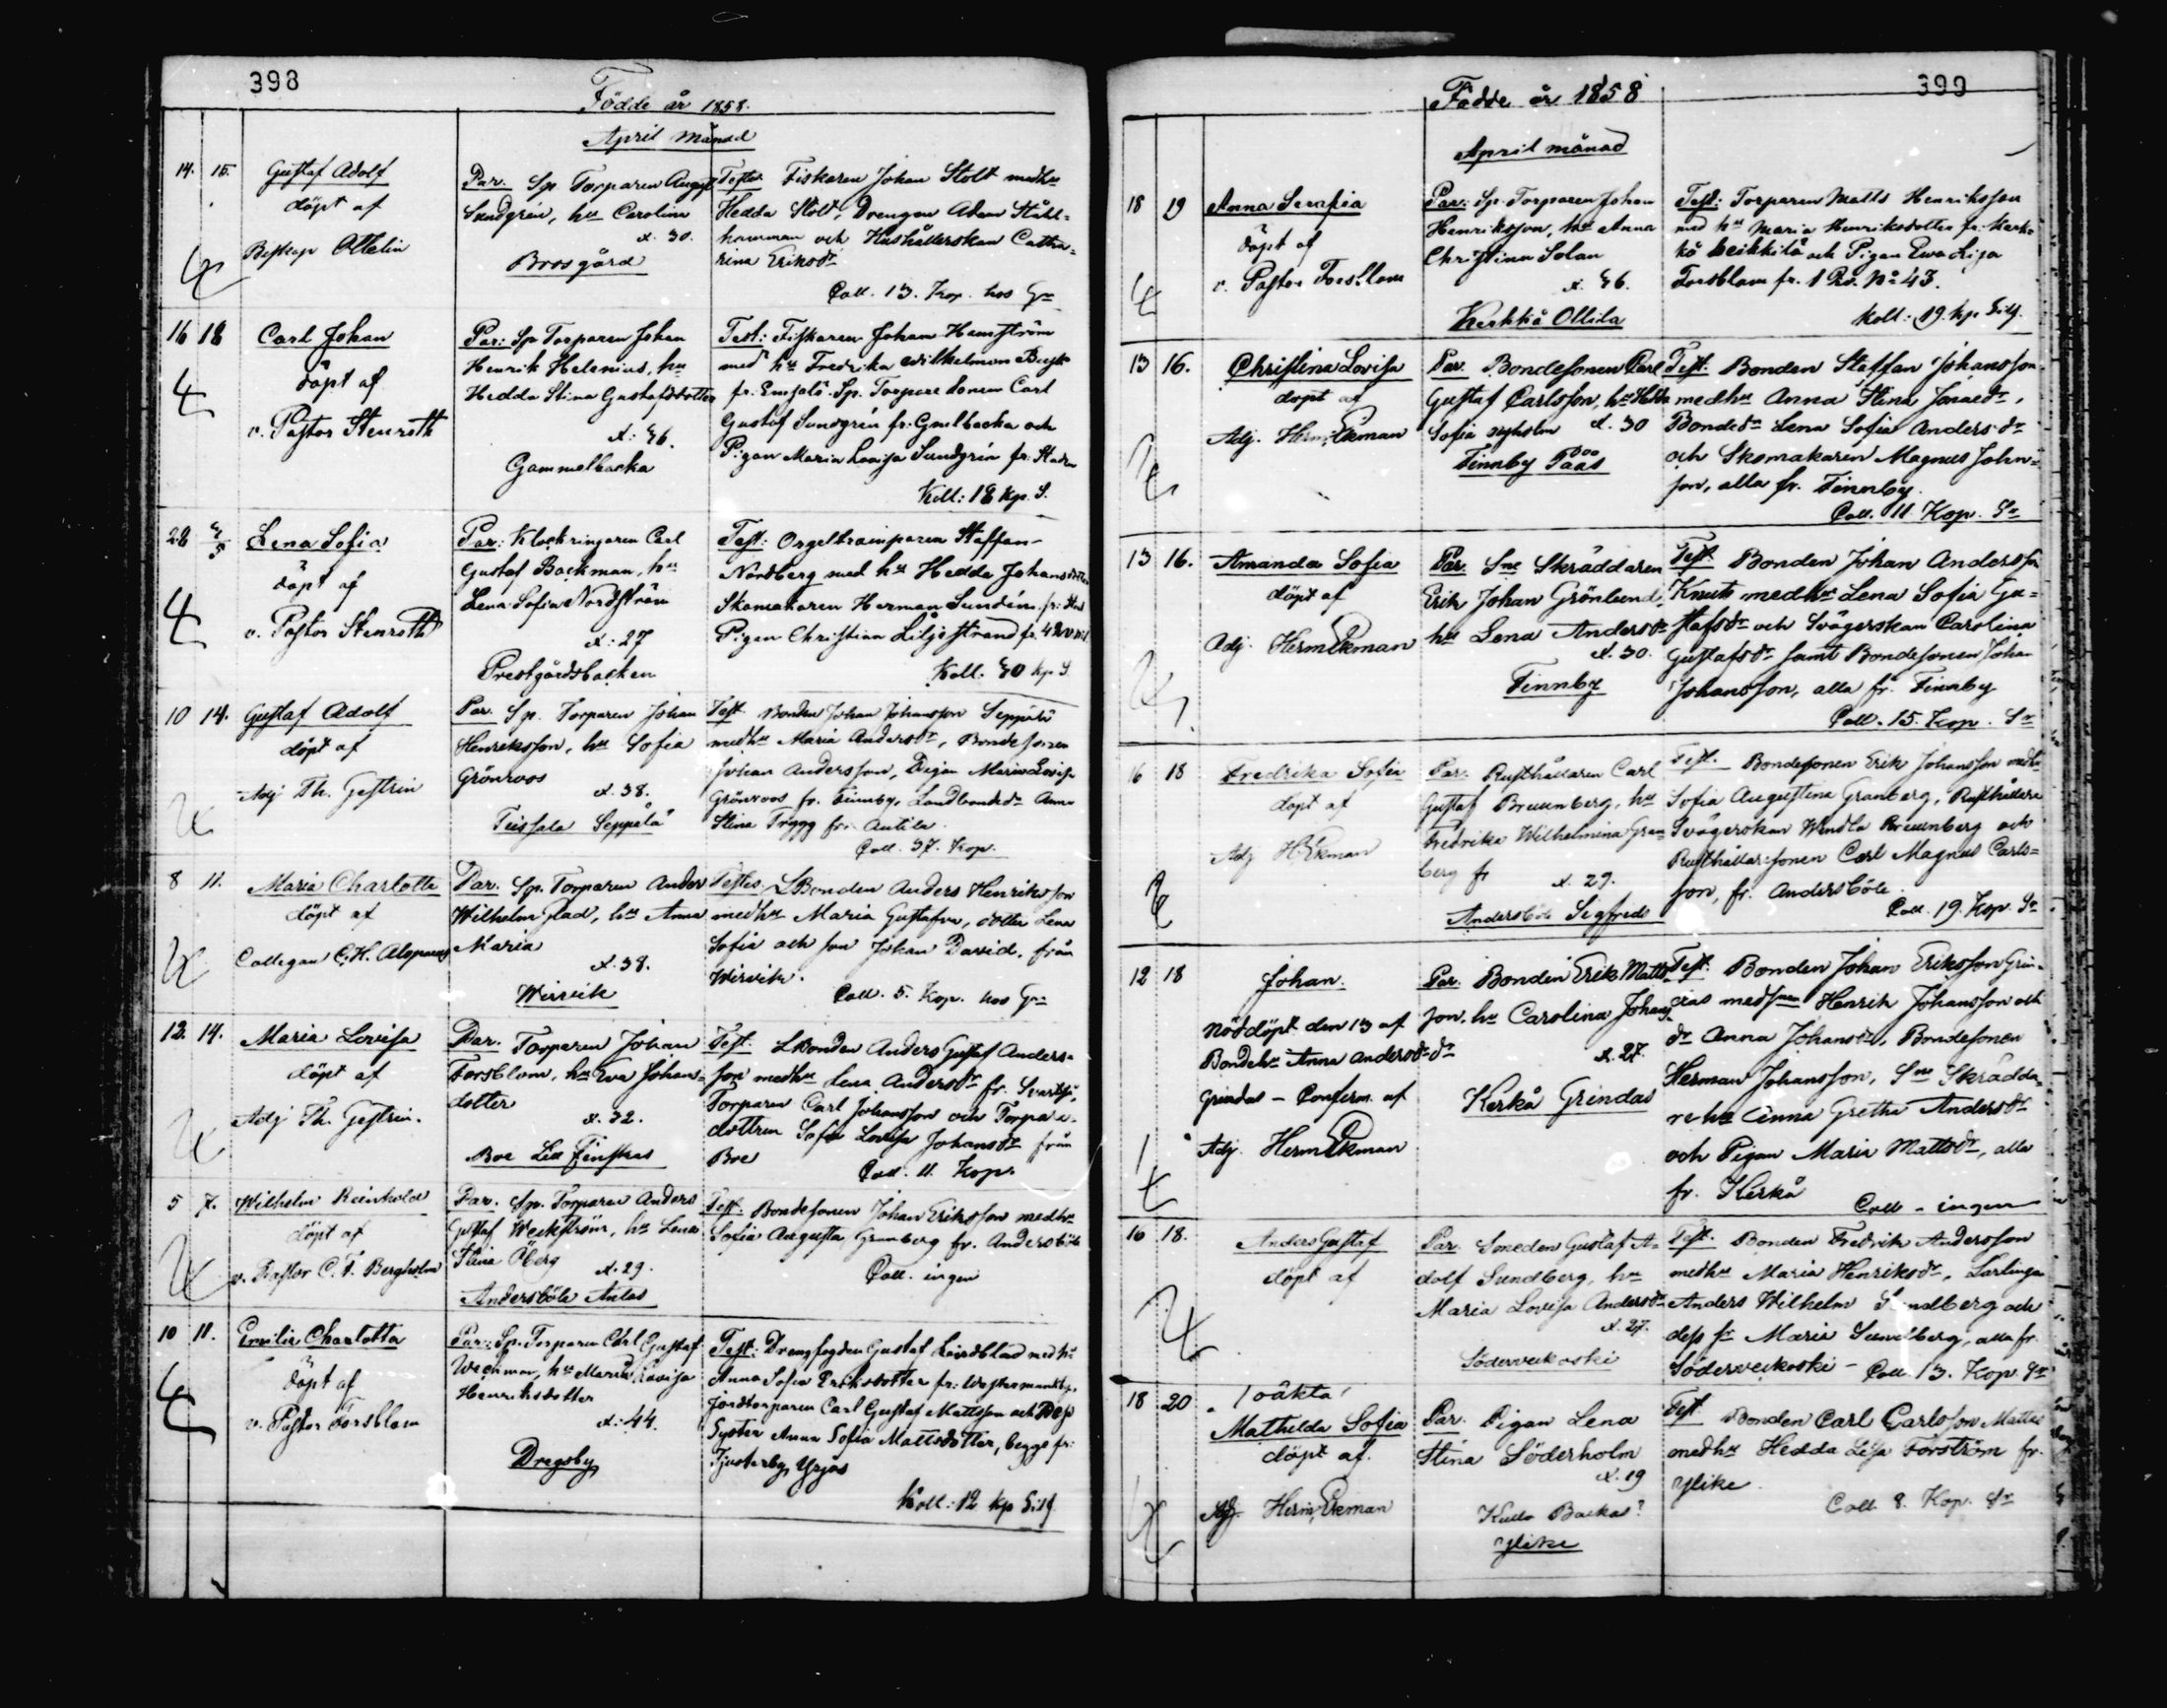 398
Födde år 1858.
April Månad
14. 15. Gustaf Adolf
döpt af
Biskop Ottelin
Par. Sp. Torparen August
Sundgrén, hu Carolina
x. 30.
Brosgård
Testes Fiskaren Johan Stolt medhu
Hedda Stolt, Drengen Adam Ståhl=
hamman och Hushållerskan Catha=
rina Eriksdr
Coll. 13. Kop. hos Gu
16 18 Carl Johan
döpt af
v. Pastor Stenroth
Par: Sp Torparen Johan
Henrik Helenius, hu
Hedda Stina Gustafsdotter
x: 36.
Gammelbacka
Test: Fiskaren Johan Hamström
med hu Fredrika Wilhelmina
fr: Emsalö. Sp. Torpare sonen Carl
Gustaf Sundgrén fr: Gmlbacka och
Pigan Maria Lovisa Sundgrén fr: Staden
Koll: 18 kp. S.
28 Lena Sofia
döpt af
v. Pastor Stenroth
Par: Klockringaren Carl
Gustaf Backman, hu
Lena Sofia Nordström
x: 27
Prestgårdsbacken
Test: Orgeltramparen Staffan
Nordberg med hu Hedda Johansdotter
Skomakaren Herman Sundén fr: Stad
Pigan Christina Liljestrand
Koll: 30 kp S
10 14. Gustaf Adolf
döpt af
Adj Th. Gestrin
Par. Sp. Torparen Johan
Henriksson, hu Sofia
Grönroos
x. 38.
Teissala Seppälä
Test. Bonden Johan Johansson Seppälä
medhu Maria Andersdr, Bondesonen
Johan Andersson, Pigan Maria Lovisa
Grönroos fr. Finnby, Landbondedr Anna
Stina Trygg fr. Antila
Coll. 37. Kop.
8 11. Maria Charlotta
döpt af
Collegan C.H. Alopaeus
Par. Sp. Torparen Anders
Wilhelm Glad, hu Anna
Maria
x. 38.
Wirvik
Testes LBonden Anders Henriksson
medhu Maria Gustafva, dotter Lena
Sofia och son Johan David, från
Wirvik.
Coll. 5. Kop. hos Gu
12. 14. Maria Lovisa
döpt af
Adj Th. Gestrin.
Par. Torparen Johan
Forsblom, hu Eva Johans=
dotter
x. 32.
Boe Lill Finskas
Test. LBonden Anders Gustaf Anders=
son medhu Lena Andersdr fr. Svartså,
Torparen Carl Johansson och Torpare
dottren Sofia Lovisa Johansdr från
Boe
Coll. 11. Kop.
5 7. Wilhelm Reinhold
döpt af
v. Pastor C. T. Bergholm
Par. Sp. Torparen Anders
Gustaf Weckström, hu Lena
Stina Öberg
x. 29.
Andersböle Antas
Test. Bondesonen Johan Eriksson medhu
Sofia Augusta Granberg fr. Andersböle
Coll. ingen
10 11. Emilia Charlotta
döpt af
v. Pastor Forsblom
Par: Sp. Torparen Carl Gustaf
Weckman, hu Maria Lovisa
Henriksdotter
x: 44.
Dregsby
Test: Drengfogden Gustaf Lindblad med hu
Anna Sofia Eriksdotter fr:
jordtorparen Carl Gustaf Mattsson och Dess
Syster Anna Sofia Mattsdotter, begge fr:
Tjusterby Yrjas
Koll: 12 kp Silf
399
Födde år 1858
April månad
18 19 Anna Serafia
döpt af
v. Pastor Forsblom
Par: Sp. Torparen Johan
Henriksson, hu Anna
Christina Solan
x. 36.
Kerkkå Ollila
Test: Torparen Matts Henriksson
med hu Maria Henriksdotter fr. Kerk=
kå Heikkilä och Pigan Ewa Lisa
Forsblom fr. No 43.
Koll: 19 kp Silf.
13 16. Christina Lovisa
döpt af
Adj. Herm. Ekman
Par. Bondesonen Carl
Gustaf Carlsson, hu Hedda
Sofia Nyholm x. 30
Finnby Paas
Test. Bonden Staffan Johansson
medhu Anna Stina Jonaedr,
Bondedr Lena Sofia Andersdr
och Skomakaren Magnus Johns=
son, alla fr. Finnby.
Coll. 11 Kop. Sr
13 16. Amanda Sofia
döpt af
Adj. Herm Ekman
Par. Sne Skräddaren
Erik Johan Grönlund,
hu Lena Andersdr
x. 30.
Finnby
Test. Bonden Johan Andersson
Knuts medhu Lena Sofia Gu=
stafsdr och Svägerskan Carolina
Gustafsdr samt Bondesonen Johan
Johansson, alla fr. Finnby
Coll. 15. Kop. Sr
16 18 Fredrika Sofia
döpt af
Adj H. Ekman
Par. Rusthållaren Carl
Gustaf Breunberg, hu
Fredrika Wilhelmina Gran
berg fr
x. 29.
Andersböle Sigfreds
Test. Bondesonen Erik Johansson medhu
Sofia Augustina Granberg, Rusthållare
Svägerskan Wendla Breunberg och
Rusthållaresonen Carl Magnus Carls=
son, fr. Andersböle.
Coll. 19. Kop. Sr
12 18 Johan.
Nöddöpt den 13 af
Bondehu Anna Andersdr
Grindas – Conferm. af
Adj. Herm Ekman
Par. Bonden Erik Matts
son, hu Carolina Johans
dr
x. 27.
Kerkå Grindas
Test. Bonden Johan Eriksson Grin=
das med Henrik Johansson och
dr Anna Johansdr, Bondesonen
Herman Johansson, Sne Skrädda=
re hu Anna Greta Andersdr
och Pigan Maria Mattsdr, alla
fr. Kerkå
Coll – ingen
16 18. Anders Gustaf
döpt af
Par. Smeden Gustaf A=
dolf Sundberg, hu
Maria Lovisa Andersdr
x. 27.
Söderveckoski
Test. Bonden Fredrik Andersson
medhu Maria Henriksdr, Lärlingen
Anders Wilhelm Sundberg och
dess hu Maria Sundberg, alla fr.
Söderveckoski – Coll. 13. Kop. Sr
18 20 oäkta
Mathilda Sofia
döpt af
Adj. Herm. Ekman
Par. Pigan Lena
Stina Söderholm
x. 19
Kullo Backas?
Ylike
Test Bonden Carl Carlsson Mattas
medhu Hedda Lisa Forström fr.
Ylike.
Coll. 8. Kop. Sr